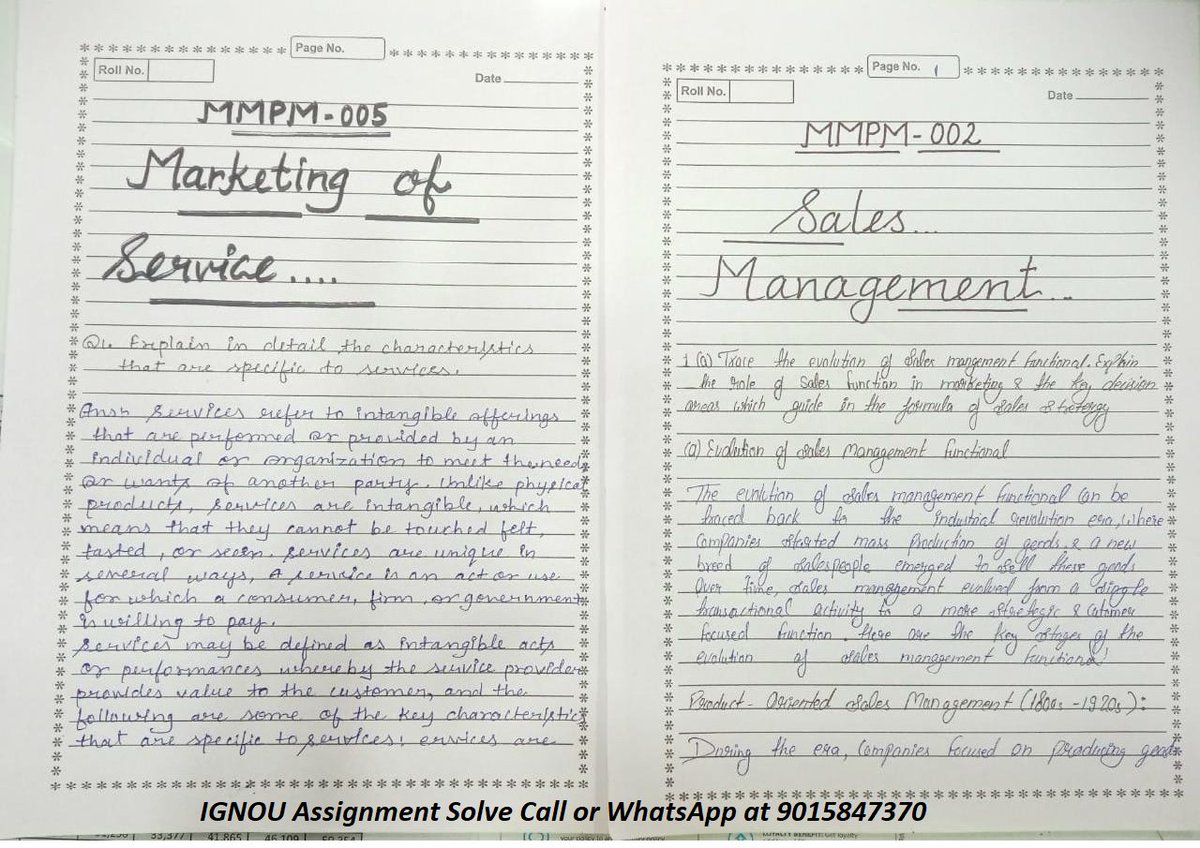 Page No.
Roll No.
Date
MMPM-005
Marketing of
Service....
Q1. Explain in detail the characteristics
that are specific to services.
Ans:- Services refer to intangible offerings
that are performed or provided by an
individual or organization to meet the needs
or wants of another party. Unlike physical
products, services are intangible, which
means that they cannot be touched felt,
tasted, or seen. Services are unique in
several ways, A service is an act or use
for which a consumer, firm, or government
is willing to pay.
Services may be defined as intangible acts
or performances whereby the service provider
provides value to the customer, and the
following are some of the key characteristics
that are specific to services! ervices are
Page No. 1
Roll No.
Date
MMPM-002
Sales...
Management...
1 (a) Trace the evolution of Sales mangement functional. Explain
the role of Sales function in marketing & the key decision
areas which guide in the formula of Sales Strategy
(a) Evolution of Sales Management functional
The evolution of Sales management functional can be
traced back to the industrial revolution era, where
Companies Started mass production of goods. & a new
breed of Salespeople emerged to Sell these goods
Over time, Sales management evolved from a
transactional activity to a more Strategic & Cutomer
focused function. Here are the key Stages of the
evolution of Sales management functional!
Product-Oriented Sales Management (1800s-1920s):
During the era, Companies focused on producing goods
IGNOU Assignment Solve Call or WhatsApp at 9015847370
53,377 41,865 46,109